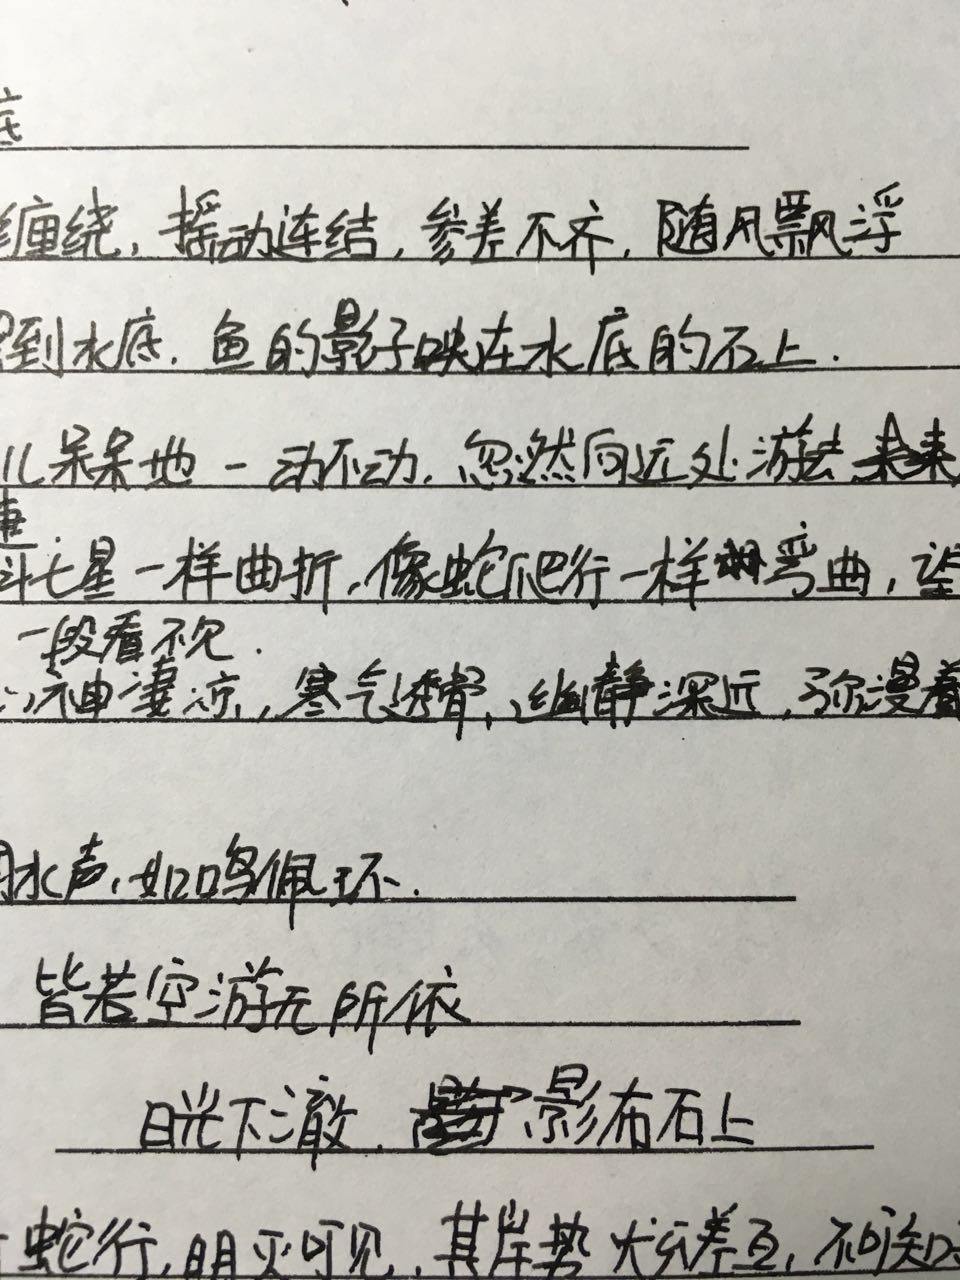 底
缠绕，摇动连结，参差不齐，随风飘浮
到水底．鱼的影子映在水底的石上．
儿呆呆地一动不动，忽然向远处游去，来来
斗七星一样曲折，像蛇爬行一样弯曲，望
一段看不见．
神凄凉，寒气透骨，幽静深远，弥漫着
水声，如鸣佩环．
皆若空游无所依
日光下澈．影布石上
蛇行，明灭可见，其岸势犬牙差互，不可知